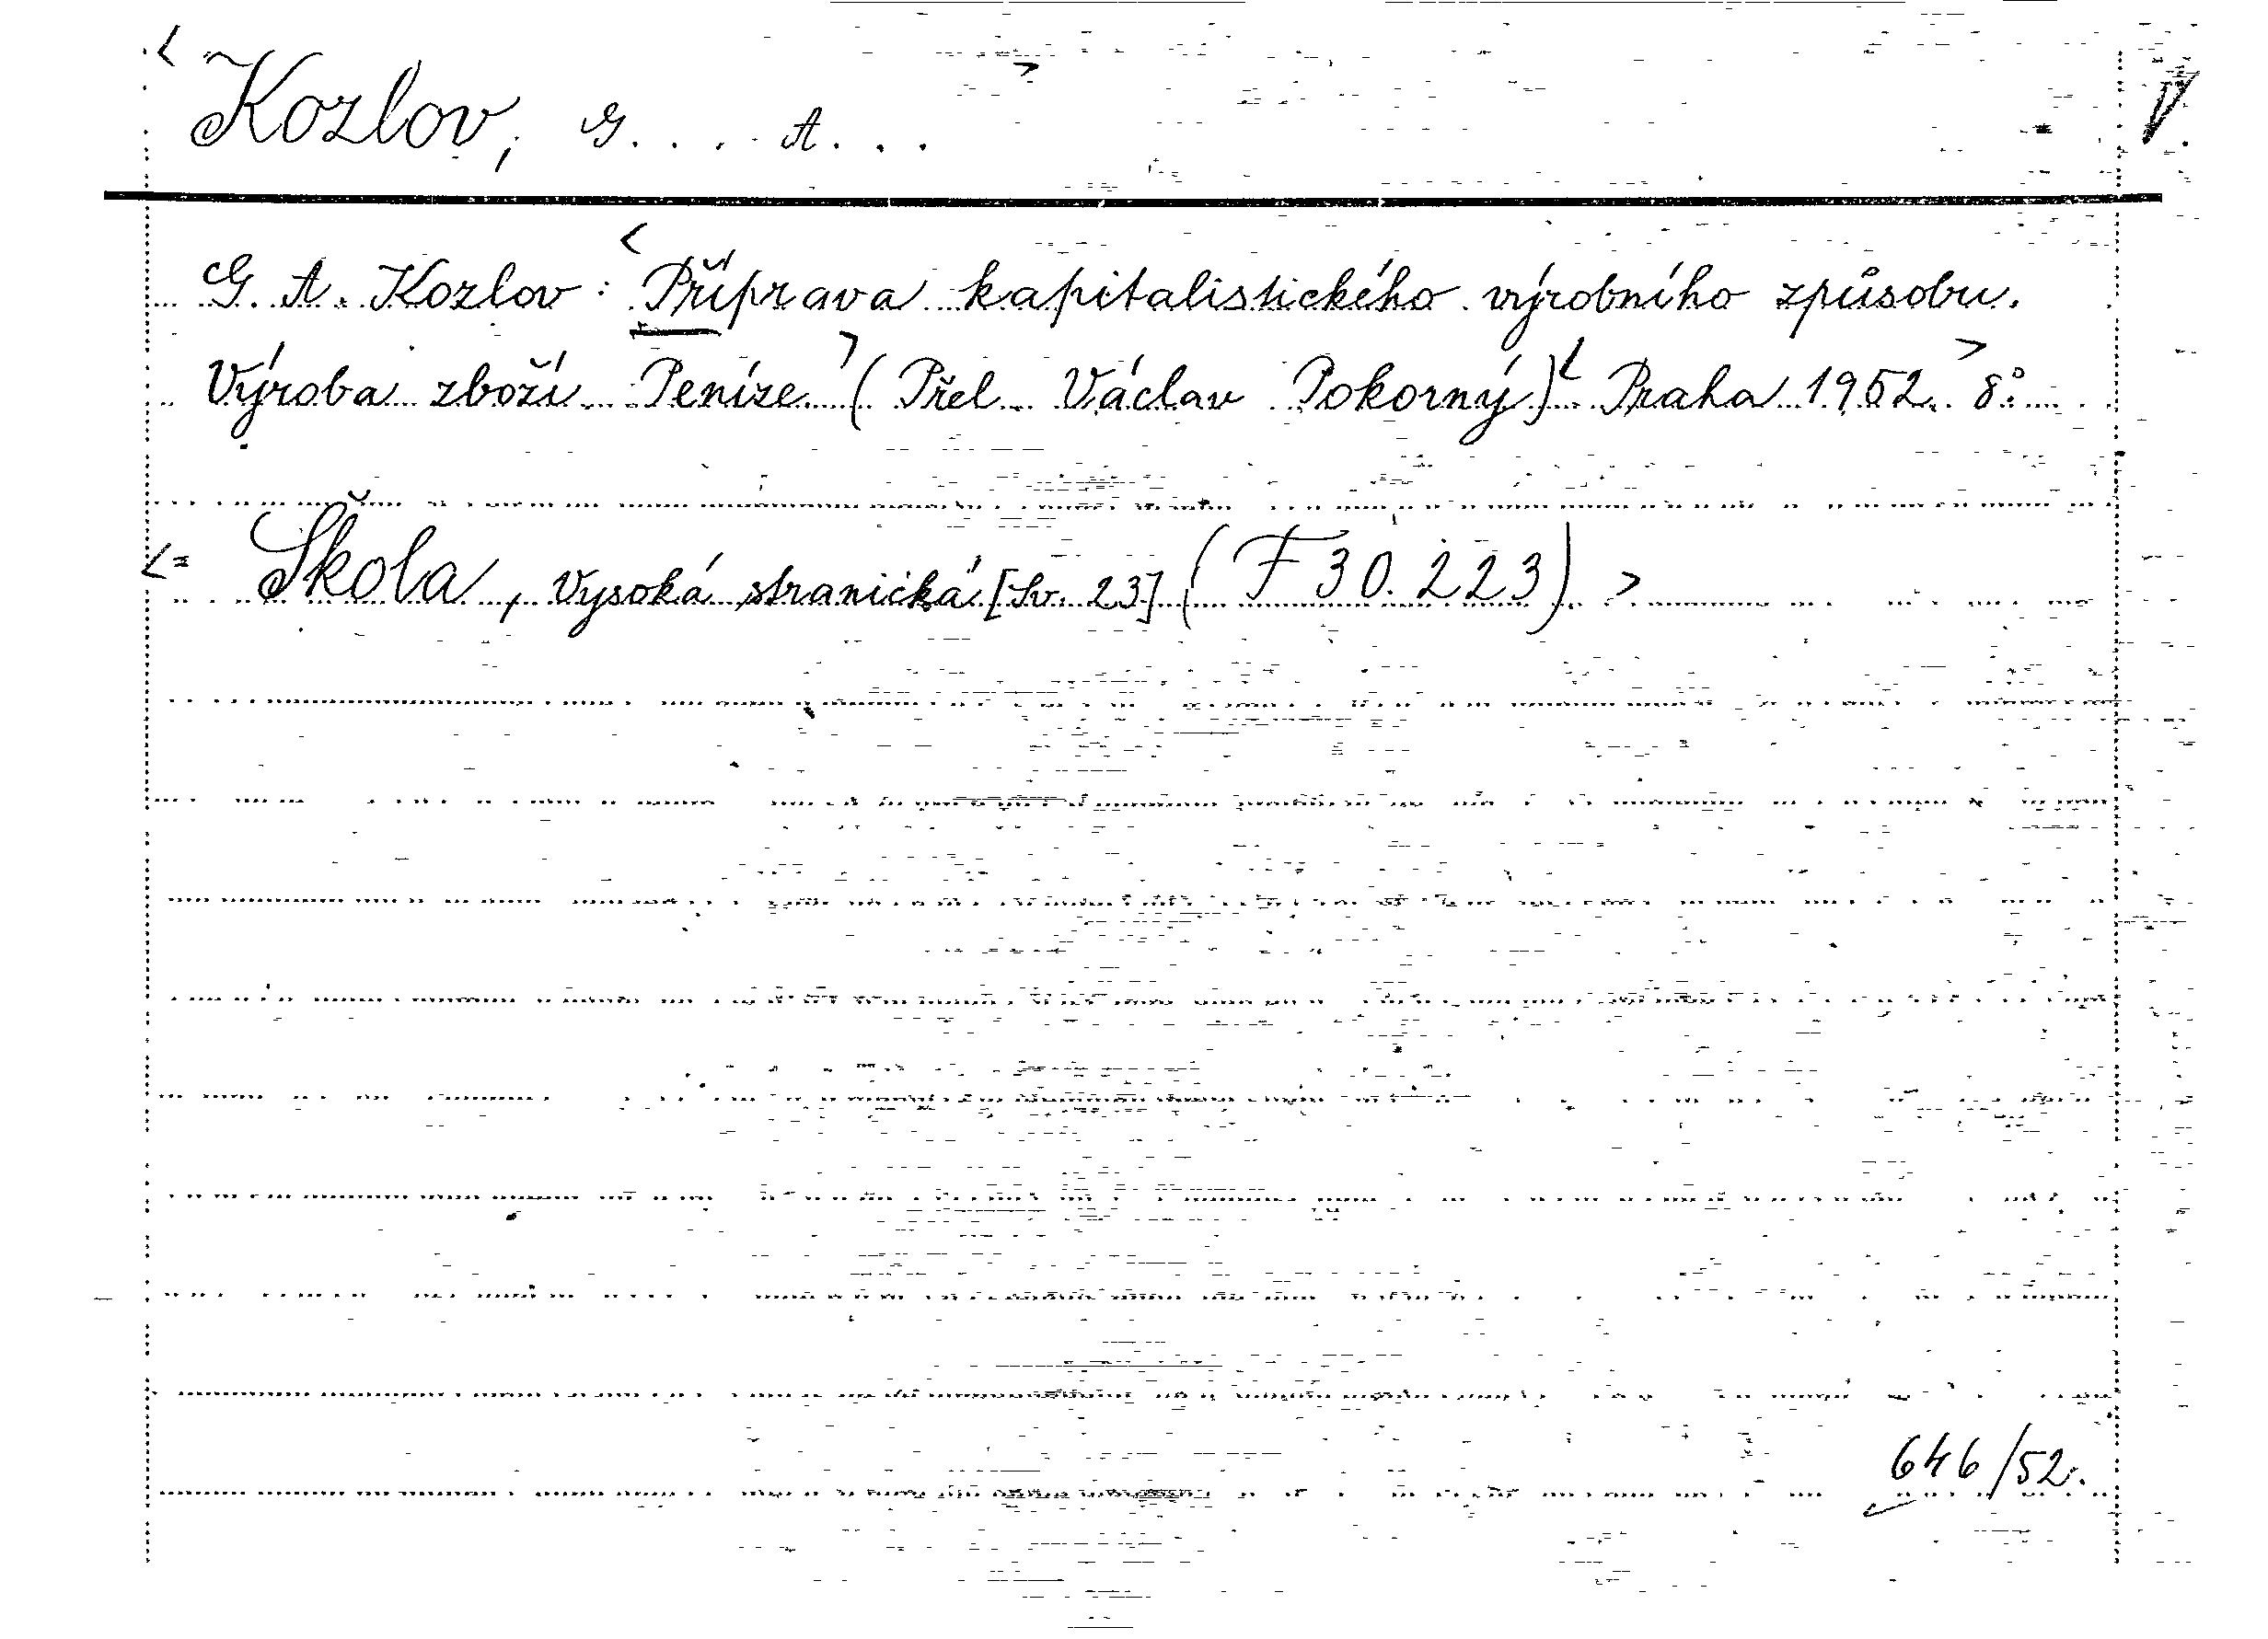 <Kozlov, G. . . . A. . . >
G. A. Kozlov: <Příprava kapitalistického výrobního způsobu.
Výroba zboží. Peníze> (Přel. Václav Pokorný) <Praha 1952.> 8°.
<= Škola, vysoká stranická [Sv. 23] (F 30.223). >
646/52.